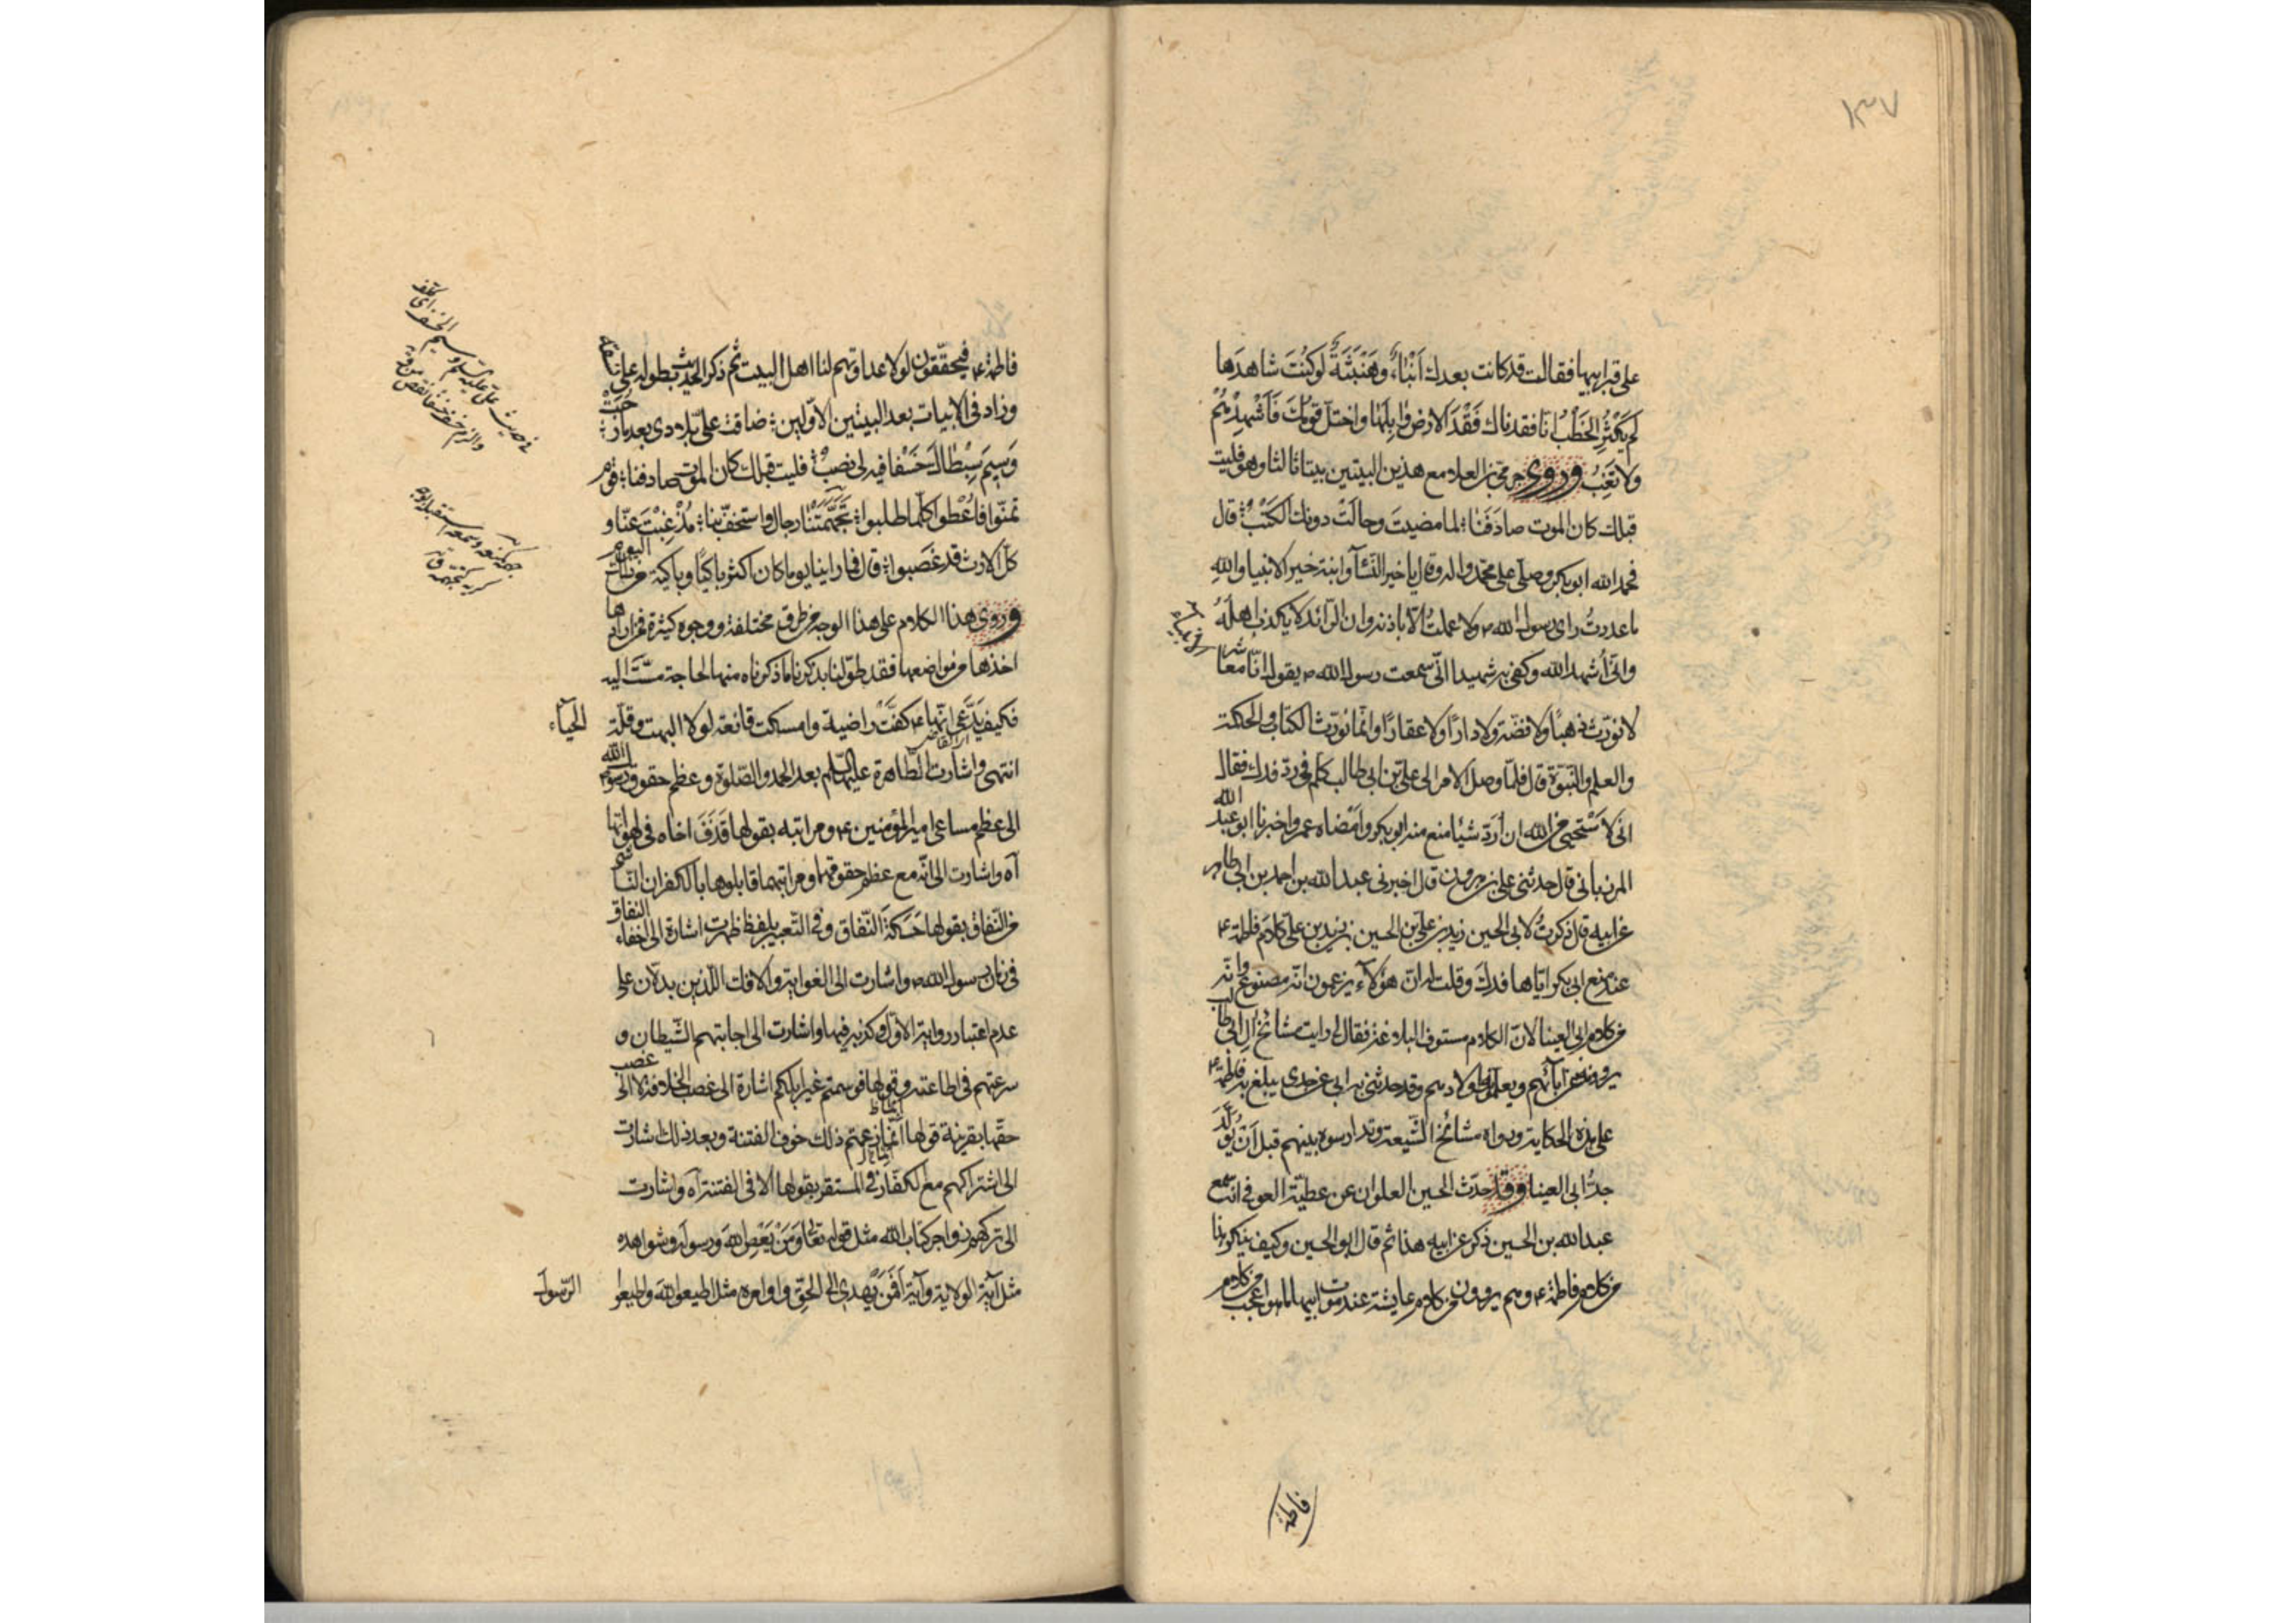 ١٣٧
على قبر ابيها فقالت قد كانت بعدك اَنْبٰاءٌ وهَنْبَثَةٌ لوكنْتَ شاهدَها
لم يَكْثُرِ الخَطْبُ انّا فقدناك فَقْدَ الارض وٰابِلَهٰا واختلّ قومُكَ فَاَشْهِدْهُمْ
ولا تَغِبُ وروى جرمى بن العلا مع هذين البيتين بيتا ثالثا وهو فليت
قبلك كان الموت صادَفَنٰا لما مضيتَ وحالَتْ دونك الكَثَبُ قال
فحمد الله ابو بكر وصلّى على محمّد واله وقال يا خير النّسآء وابنة خير الانبياء واللهِ
ما عدوتُ راى رسول الله ص ولا عملتُ الّا باذنه وان الرّائد لا يكذب اهلَهُ
وانّى اُشهد الله وكفى به شهيدا انّى سمعت رسول الله ص يقول انّا معاشر
لا نورّث ذهبًا ولا فضّة ولا دارًا ولا عقارًا وانّما نورّث الكتاب والحكمة
والعلم والنّبوّة قال فلمّا وصل الامر الى علىّ بن ابى طالب كلم فى ردّ فدك فقال
انّى لَاَسْتَحْيى من الله ان اَرُدّ شيئا منع منه ابو بكر وامْضاه عمر واخبرنا ابو عبد الله
المرزبانى قال حدثنى على بن هرون قال اخبرنى عبد الله بن احمد بن ابى طاهر
عن ابيه قال ذكرتُ لابى الحسين زيد بن علىّ بن الحسين بن زيد بن على كلام فاطمة ع
عند منع ابى بكر ايّاها فدك وقلت له انّ هؤلآء يزعمون انّه مصنوع وانّه
من كلام ابى العينا لانّ الكلام مستوف البلاغة فقال لى رايت مشائخ آل ابى طالب
يروونه عن آبائهم ويعلمونه اولادهم وقد حدثنى به ابى عن جدى يبلغ به فاطمة ع
على هذه الحكاية ورواه مشائخ الشّيعة وتدارسوه بينهم قبل اَنْ يُولَدَ
جدُّ ابى العينا وقد حدّث الحسين العلوان عن عطيّة العوفى انّه سمع
عبد الله بن الحسين ذكر عن ابيه هذا ثم قال ابو الحسين وكيف ينكرون هذا
من كلام فاطمة ع وهم يروون من كلام عايشة عند موت ابيها ما هو اعجب من كلام
فاطمة
فاطمة ع فيحقّقون لولا عداوتهم لنا اهل البيت ثم ذكر الحديث بطوله على نسقه
وزاد فى الابيات بعد البيتين الاوّلين ضاقت علىّ بلادى بعد ما رَحُبَتْ
وَسِيمَ سِبْطٰاكَ خَسْفًا فيه لى نصبُ فليت قبلك كان الموت صادفنا قوم
تمنّوا فاُعْطوا كلّما طلبوا تَجَهَّمَتْنٰا رجال واستخفّ بنا مُذْ غِبْتَ عنّا و
كلّ الارث قد غَصَبوا قال فما راينا يوما كان اكثر باكيًا وباكية من ذلك اليوم
وروى هذا الكلام على هذا الوجه من طرق مختلفة ووجوه كثيرة فمن ارادها
اخذها من مواضعها فقد طوّلنا بذكرنا ما ذكرناه منها لحاجة مسّت اليه
فكيف يدّعى انّها ع كفّت راضية وامسكت قانعة لولا البهت وقلّة الحيآء
انتهى واشارت الطّاهرة عليها السّلم بعد الحمد والصّلوة وعظم حقوق رسول الله
الى عظم مساعى امير المؤمنين ع ومراتبه بقولها قَذَفَ اخاه فى لهواتها
آه واشارت الى انّه مع عظم حقوقهما ومراتبهما قابلوها بالكفران النّاشى
من النّفاق بقولها حَسَكَةَ النّفاق وفى التّعبير بلفظ ظهرت اشارة الى اخفاء النفاق
فى زمان رسول الله ص واشارت الى الغواية والافك اللّذين يدلّان على
عدم اعتبار رواية الاوّل وكذبه فيها واشارت الى اجابتهم الشّيطان و
سرعتهم فى اطاعته وقولها فوسمتم غير ابلكم اشارة الى غصب الخلافة لا الى غصب
حقّها بقرينة قولها انّما زعمتم ذلك خوف الفتنة وبعد ذلك اشارت
الى اشتراكهم مع الكفّار فى المستقر بقولها الا فى الفتنة آه واشارت
الى تركهم زواجر كتاب الله مثل قوله تعالى وَمَنْ يَعْصِ الله ورسوله وشواهده
مثل آية الولاية وآية اَفَمَنْ يَهْدِى الى الحقّ واوامره مثل اطيعوا الله واطيعوا الرّسول